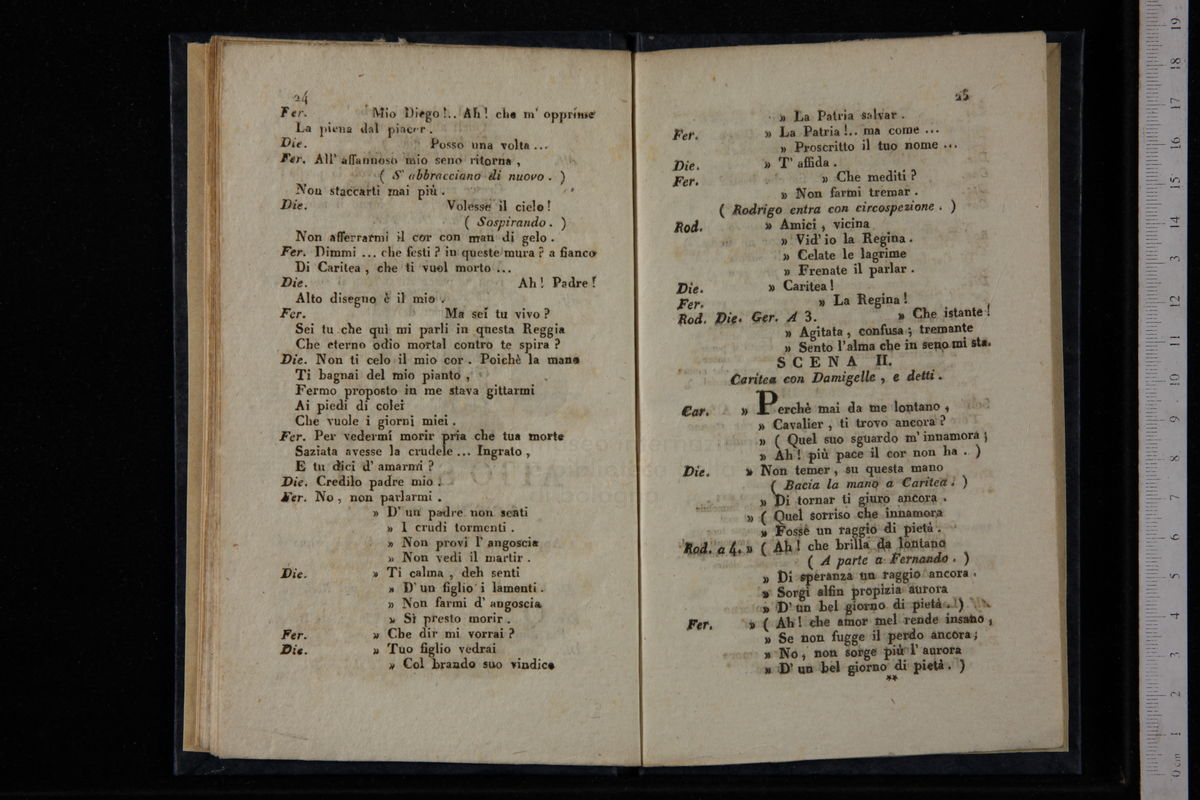 24
Fer. Mio Diego!.. Ah! che m' opprime
La piena dal piacer.
Die. Posso una volta ...
Fer. All' affannoso mio seno ritorna,
( S' abbracciano di nuovo. )
Non staccarti mai più.
Die. Volesse il cielo!
( Sospirando. )
Non afferrarmi il cor con man di gelo.
Fer. Dimmi ... che festi? in queste mura? a fianco
Di Caritea, che ti vuol morto ...
Die. Ah! Padre!
Alto disegno è il mio.
Fer. Ma sei tu vivo?
Sei tu che quì mi parli in questa Reggia
Che eterno odio mortal contro te spira?
Die. Non ti celo il mio cor. Poichè la mano
Ti bagnai del mio pianto,
Fermo proposto in me stava gittarmi
Ai piedi di colei
Che vuole i giorni miei.
Fer. Per vedermi morir pria che tua morte
Saziata avesse la crudele ... Ingrato,
E tu dici d' amarmi?
Die. Credilo padre mio.
Fer. No, non parlarmi.
» D' un padre non senti
» I crudi tormenti.
» Non provi l' angoscia
» Non vedi il martir.
Die. » Ti calma, deh senti
» D' un figlio i lamenti.
» Non farmi d' angoscia
» Sì presto morir.
Fer. » Che dir mi vorrai?
Die. » Tuo figlio vedrai
» Col brando suo vindice
25
» La Patria salvar.
Fer. » La Patria!.. ma come ...
» Proscritto il tuo nome ...
Die. » T' affida.
Fer. » Che mediti?
» Non farmi tremar.
( Rodrigo entra con circospezione. )
Rod. » Amici, vicina
» Vid' io la Regina.
» Celate le lagrime
» Frenate il parlar.
Die. » Caritea!
Fer. » La Regina!
Rod. Die. Ger. A 3. » Che istante!
» Agitata, confusa; tremante
» Sento l'alma che in seno mi sta.
SCENA II.
Caritea con Damigelle, e detti.
Car. » Perchè mai da me lontano,
» Cavalier, ti trovo ancora?
» ( Quel suo sguardo m' innamora;
» Ah! più pace il cor non ha. )
Die. » Non temer, su questa mano
( Bacia la mano a Caritea. )
» Di tornar ti giuro ancora.
» ( Quel sorriso che innamora
» Fosse un raggio di pietà.
Rod. a 4. » ( Ah! che brilla da lontano
( A parte a Fernando. )
» Di speranza un raggio ancora.
» Sorgi alfin propizia aurora
» D' un bel giorno di pietà. )
Fer. » ( Ah! che amor mel rende insano,
» Se non fugge il perdo ancora;
» No, non sorge più l' aurora
» D' un bel giorno di pietà. )
**